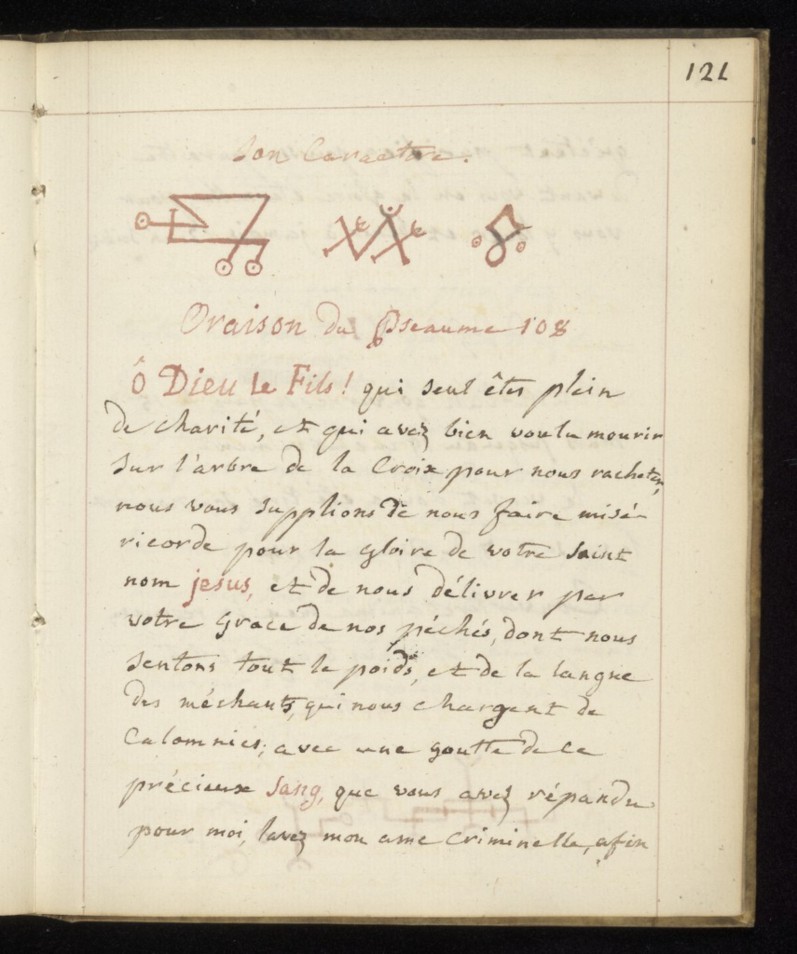 121
Son Caractere.
Oraison du Pseaume 108
Ô Dieu le Fils! qui seul êtes plein
de charité, et qui avez bien voulu mourir
sur l'arbre de la Croix pour nous racheter,
nous vous supplions de nous faire misé-
ricorde pour la gloire de votre saint
nom jesus, et de nous délivrer par
votre grace de nos péchés, dont nous
sentons tout le poids, et de la langue
des méchants, qui nous chargent de
Calomnies; avec une goutte de ce
précieux Sang, que vous avez répandu
pour moi, lavez mon ame Criminelle, afin